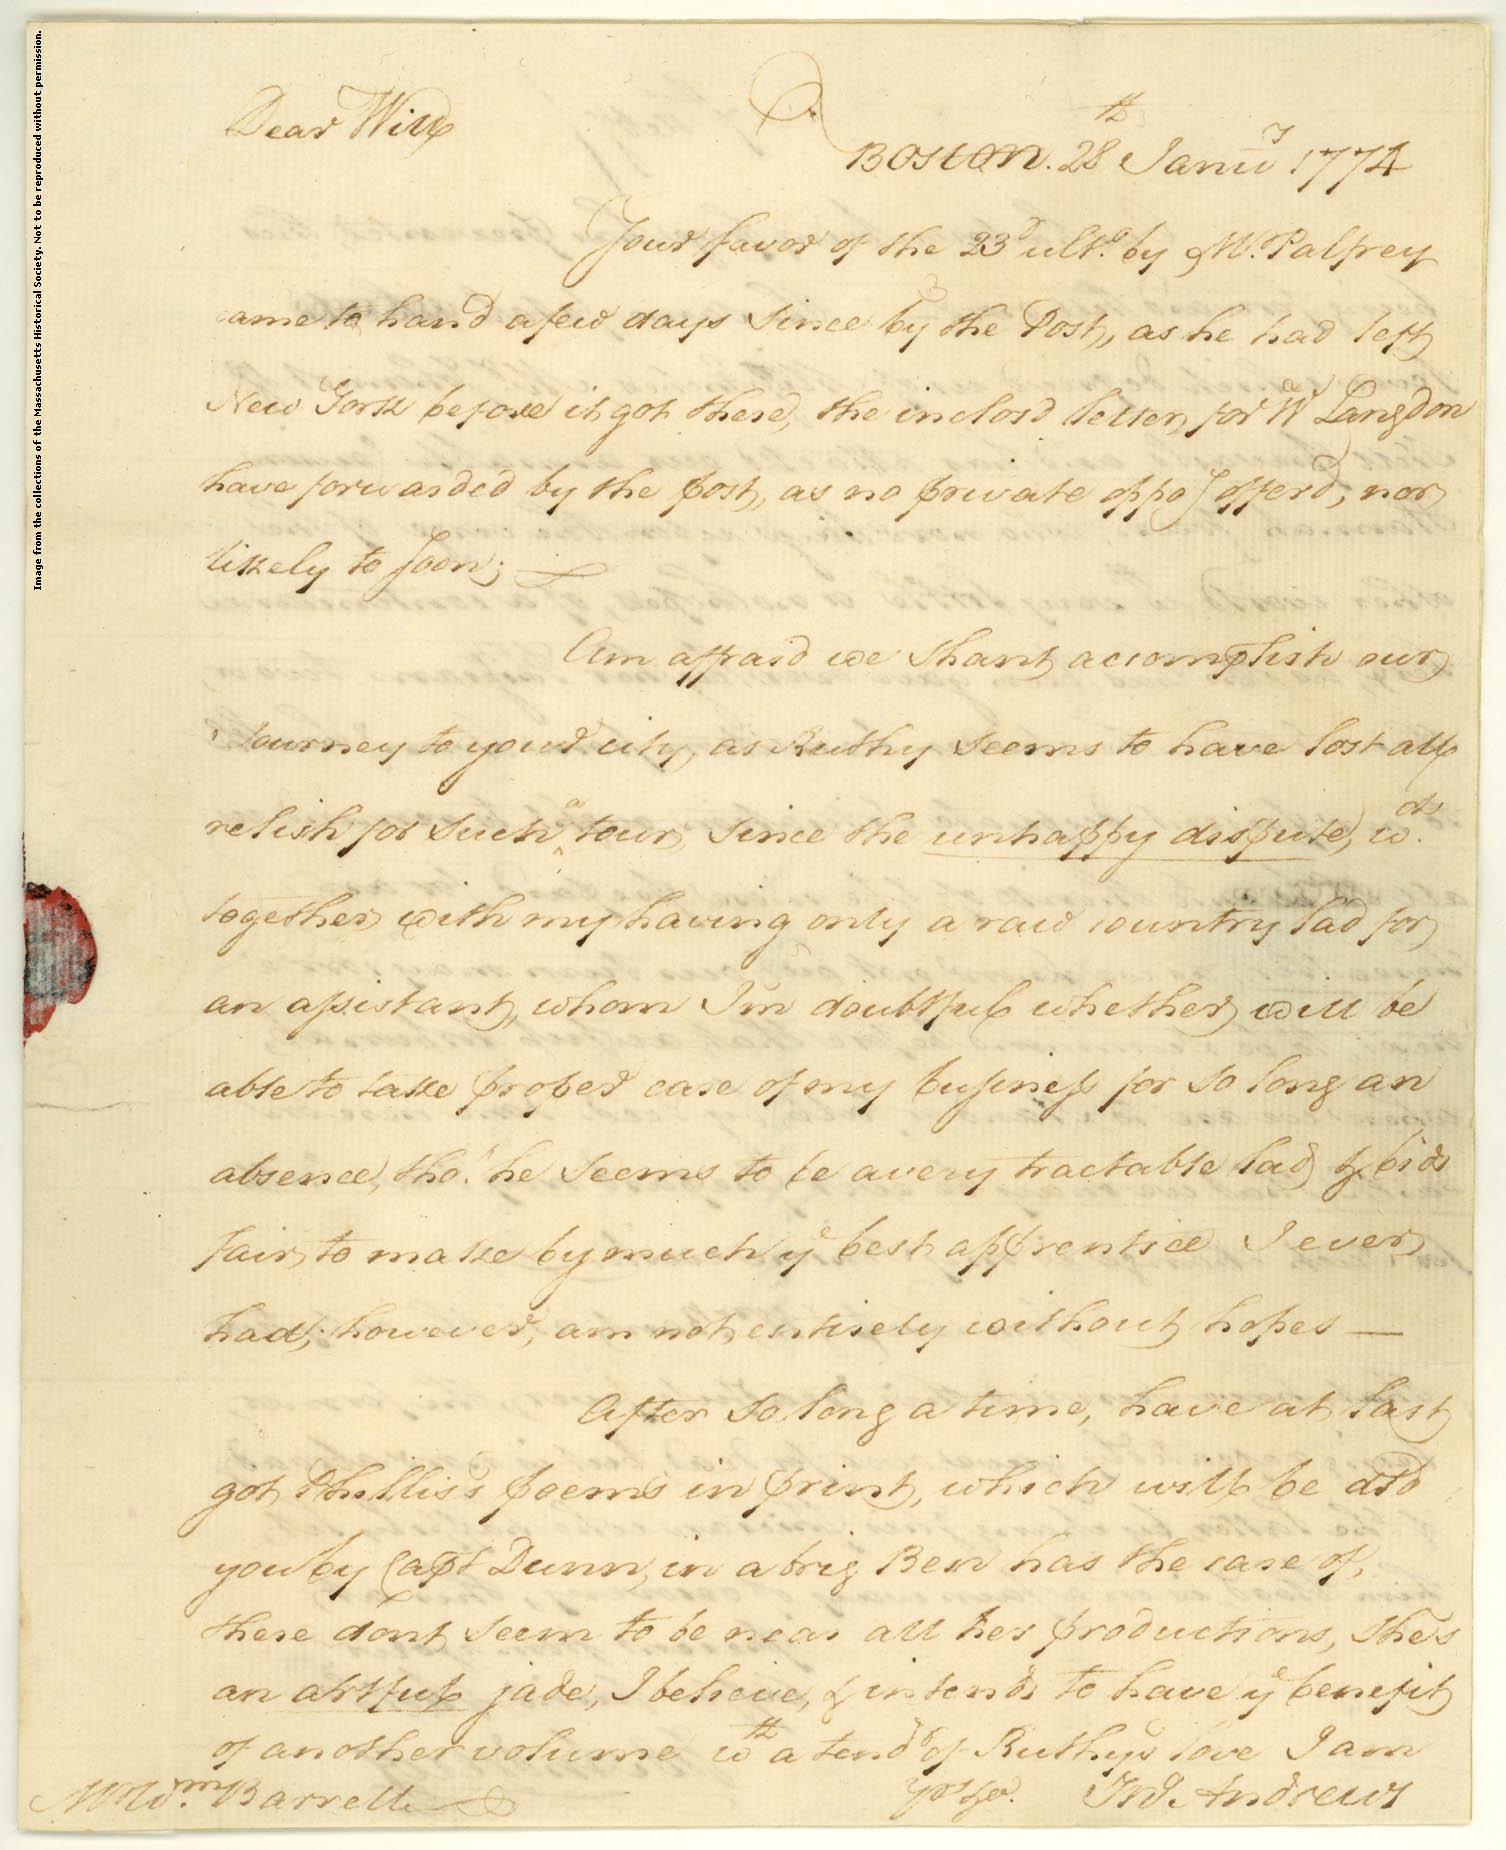 Image from the collections of the Massachusetts Historical Society. Not to be reproduced without permission.
Dear Will
Boston. 28th Janu.y 1774
Your favor of the 23d ulto. by Mr. Palfrey
came to hand a few days since by the Post, as he had left
New York before it got there, the inclos'd letter for W Langdon
have forwarded by the post, as no private oppoy offer'd, nor
likely to soon;
Am affraid we shant accomplish our
Journey to your city, as Ruthy seems to have lost all
relish for such a tour, since the unhappy dispute, w.
together with my having only a raw country lad for
an assistant, whom I'm doubtfull whether will be
able to take proper care of my business for so long an
absence, tho' he seems to be a very tractable lad & bids
fair to make by much ye best apprentice I ever
had; however, am not entirely without hopes —
After so long a time, have at last
got Phillis's poems in print, which will be
you by Capt Dunn, in a brig Ben has the care of,
there dont seem to be near all her productions, She's
an artfull jade, I believe, & intends to have ye benefit
of another volume wth a tendr of Ruthy's love I am
yrs &c. Jno. Andrews
Mr Wm. Barrell